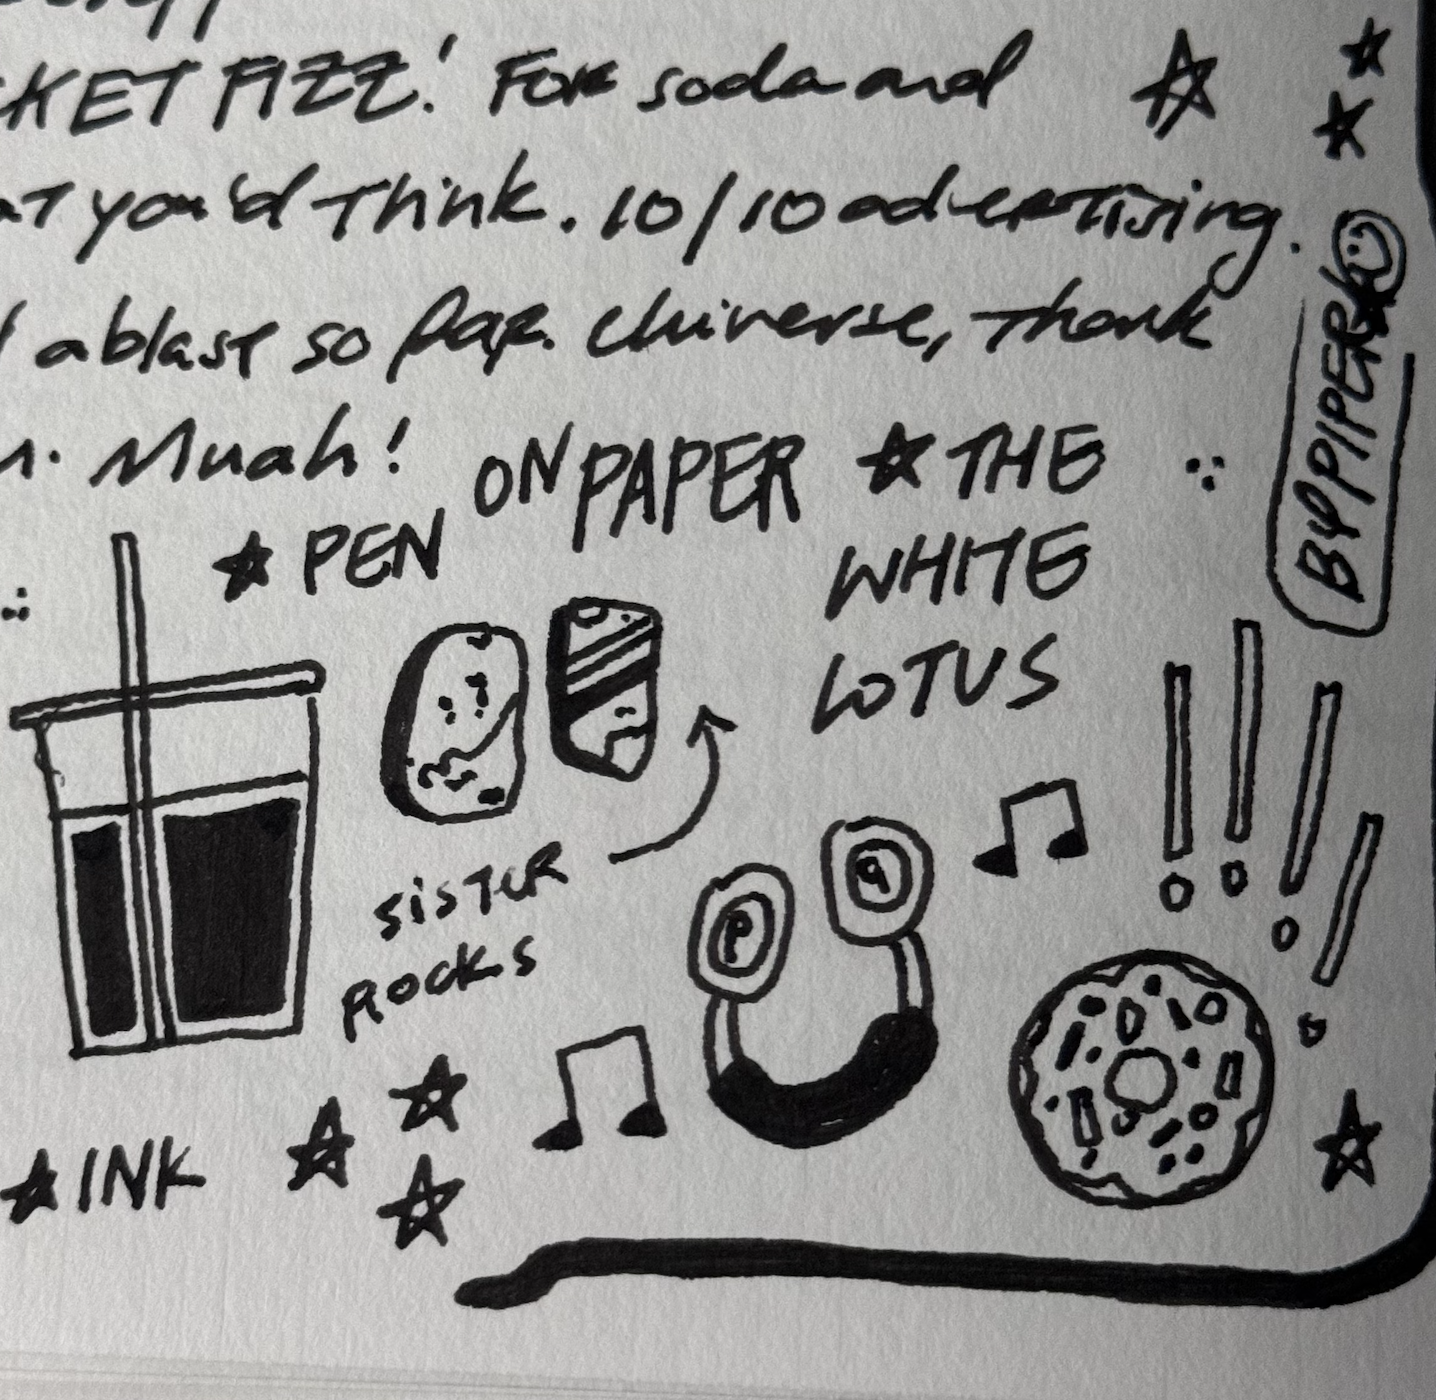 KET FIZZ! For soda and
at you'd think. 10/10 advertising.
a blast so far. Universe, thank
. Muah!
ON PAPER
THE
WHITE
LOTUS
PEN
SISTER
ROCKS
P
INK
BY PIPER